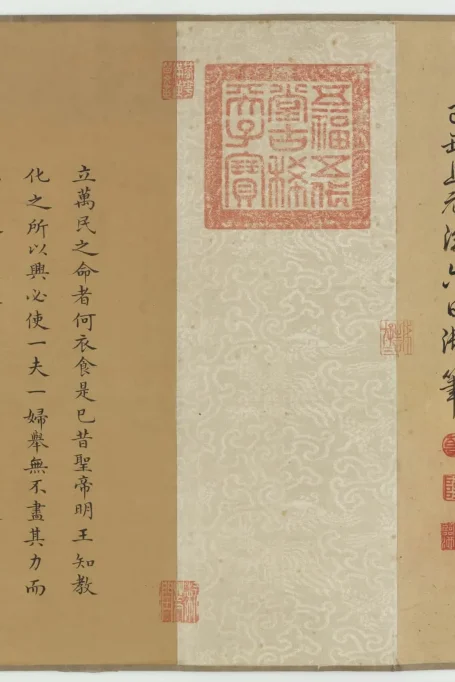 上元後六日御筆
五福五代
堂古稀
天子寶
立萬民之命者何衣食是巳昔聖帝明王知教
化之所以興必使一夫一婦舉無不盡其力而